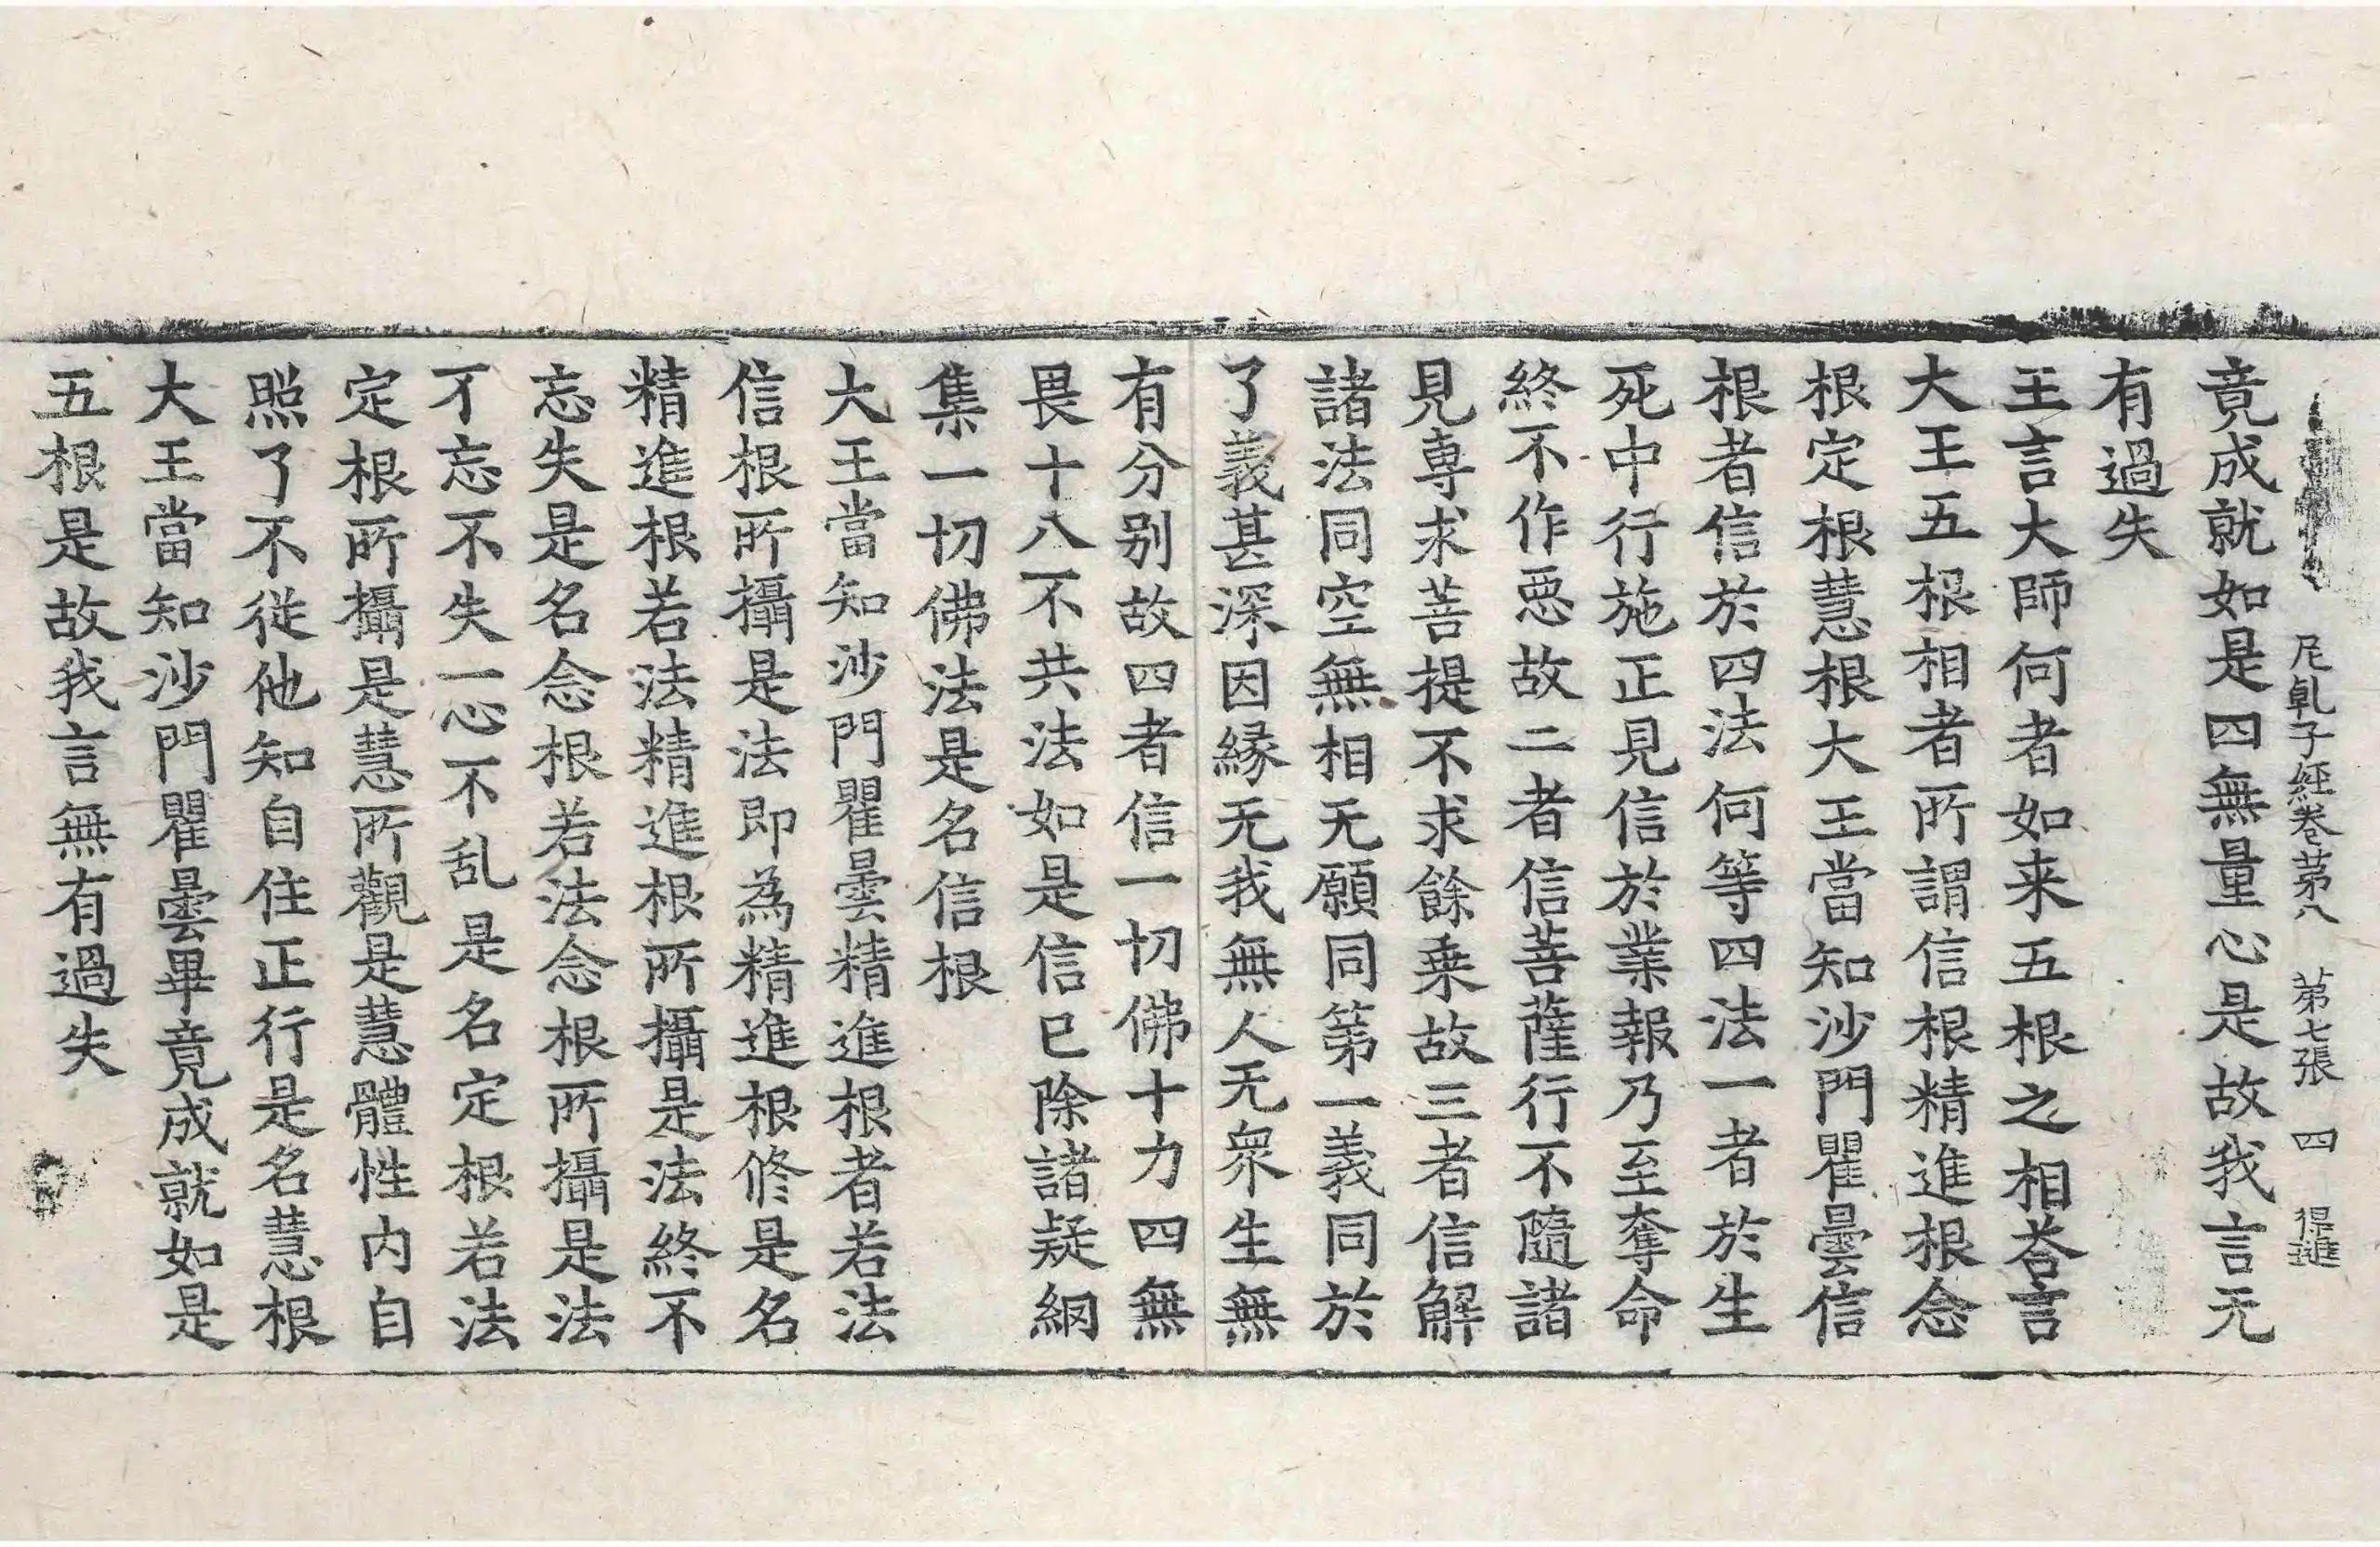 尼乹子經卷苐八 苐七張 四 得進
竟成就如是四無量心是故我言无
有過失
王言大師何者如来五根之相荅言
大王五根相者所謂信根精進根念
根定根慧根大王當知沙門瞿曇信
根者信於四法何等四法一者於生
死中行施正見信於業報乃至奪命
終不作惡故二者信菩薩行不隨諸
見專求菩提不求餘乗故三者信解
諸法同空無相无願同第一義同於
了義甚深因緣无我無人无衆生無
有分别故四者信一切佛十力四無
畏十八不共法如是信已除諸疑網
集一切佛法是名信根
大王當知沙門瞿曇精進根者若法
信根所攝是法即為精進根俢是名
精進根若法精進根所攝是法終不
忘失是名念根若法念根所攝是法
不忘不失一心不乱是名定根若法
定根所攝是慧所觀是慧體性内自
照了不従他知自住正行是名慧根
大王當知沙門瞿曇畢竟成就如是
五根是故我言無有過失